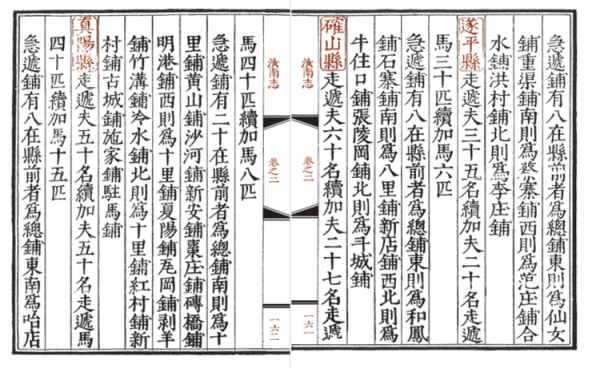 急遞鋪有八在縣前者爲總鋪東則爲仙女
鋪重渠鋪南則爲蔡寨鋪西則爲范庄鋪合
水鋪洪村鋪北則爲李庄鋪
遂平縣走遞夫三十五名續加夫二十名走遞
馬三十匹續加馬六匹
急遞鋪有八在縣前者爲總鋪東則爲和鳳
鋪石寨鋪南則爲八里鋪新店鋪西北則爲
牛住口鋪張陵岡鋪北則爲斗城鋪
確山縣走遞夫六十名續加夫二十七名走遞
汝南志 卷之二 一六一
汝南志 卷之二 一六二
馬四十匹續加馬八匹
急遞鋪有二十在縣前者爲總鋪南則爲十
里鋪黃山鋪沙河鋪新安鋪棗庄鋪磚橋鋪
明港鋪西則爲十里鋪夏陽鋪瓦岡鋪剥羊
鋪竹溝鋪冷水鋪北則爲十里鋪紅村鋪新
村鋪古城鋪施家鋪駐馬鋪
真陽縣走遞夫五十名續加夫五十名走遞馬
四十匹續加馬十五匹
急遞鋪有八在縣前者爲總鋪東南爲哈店